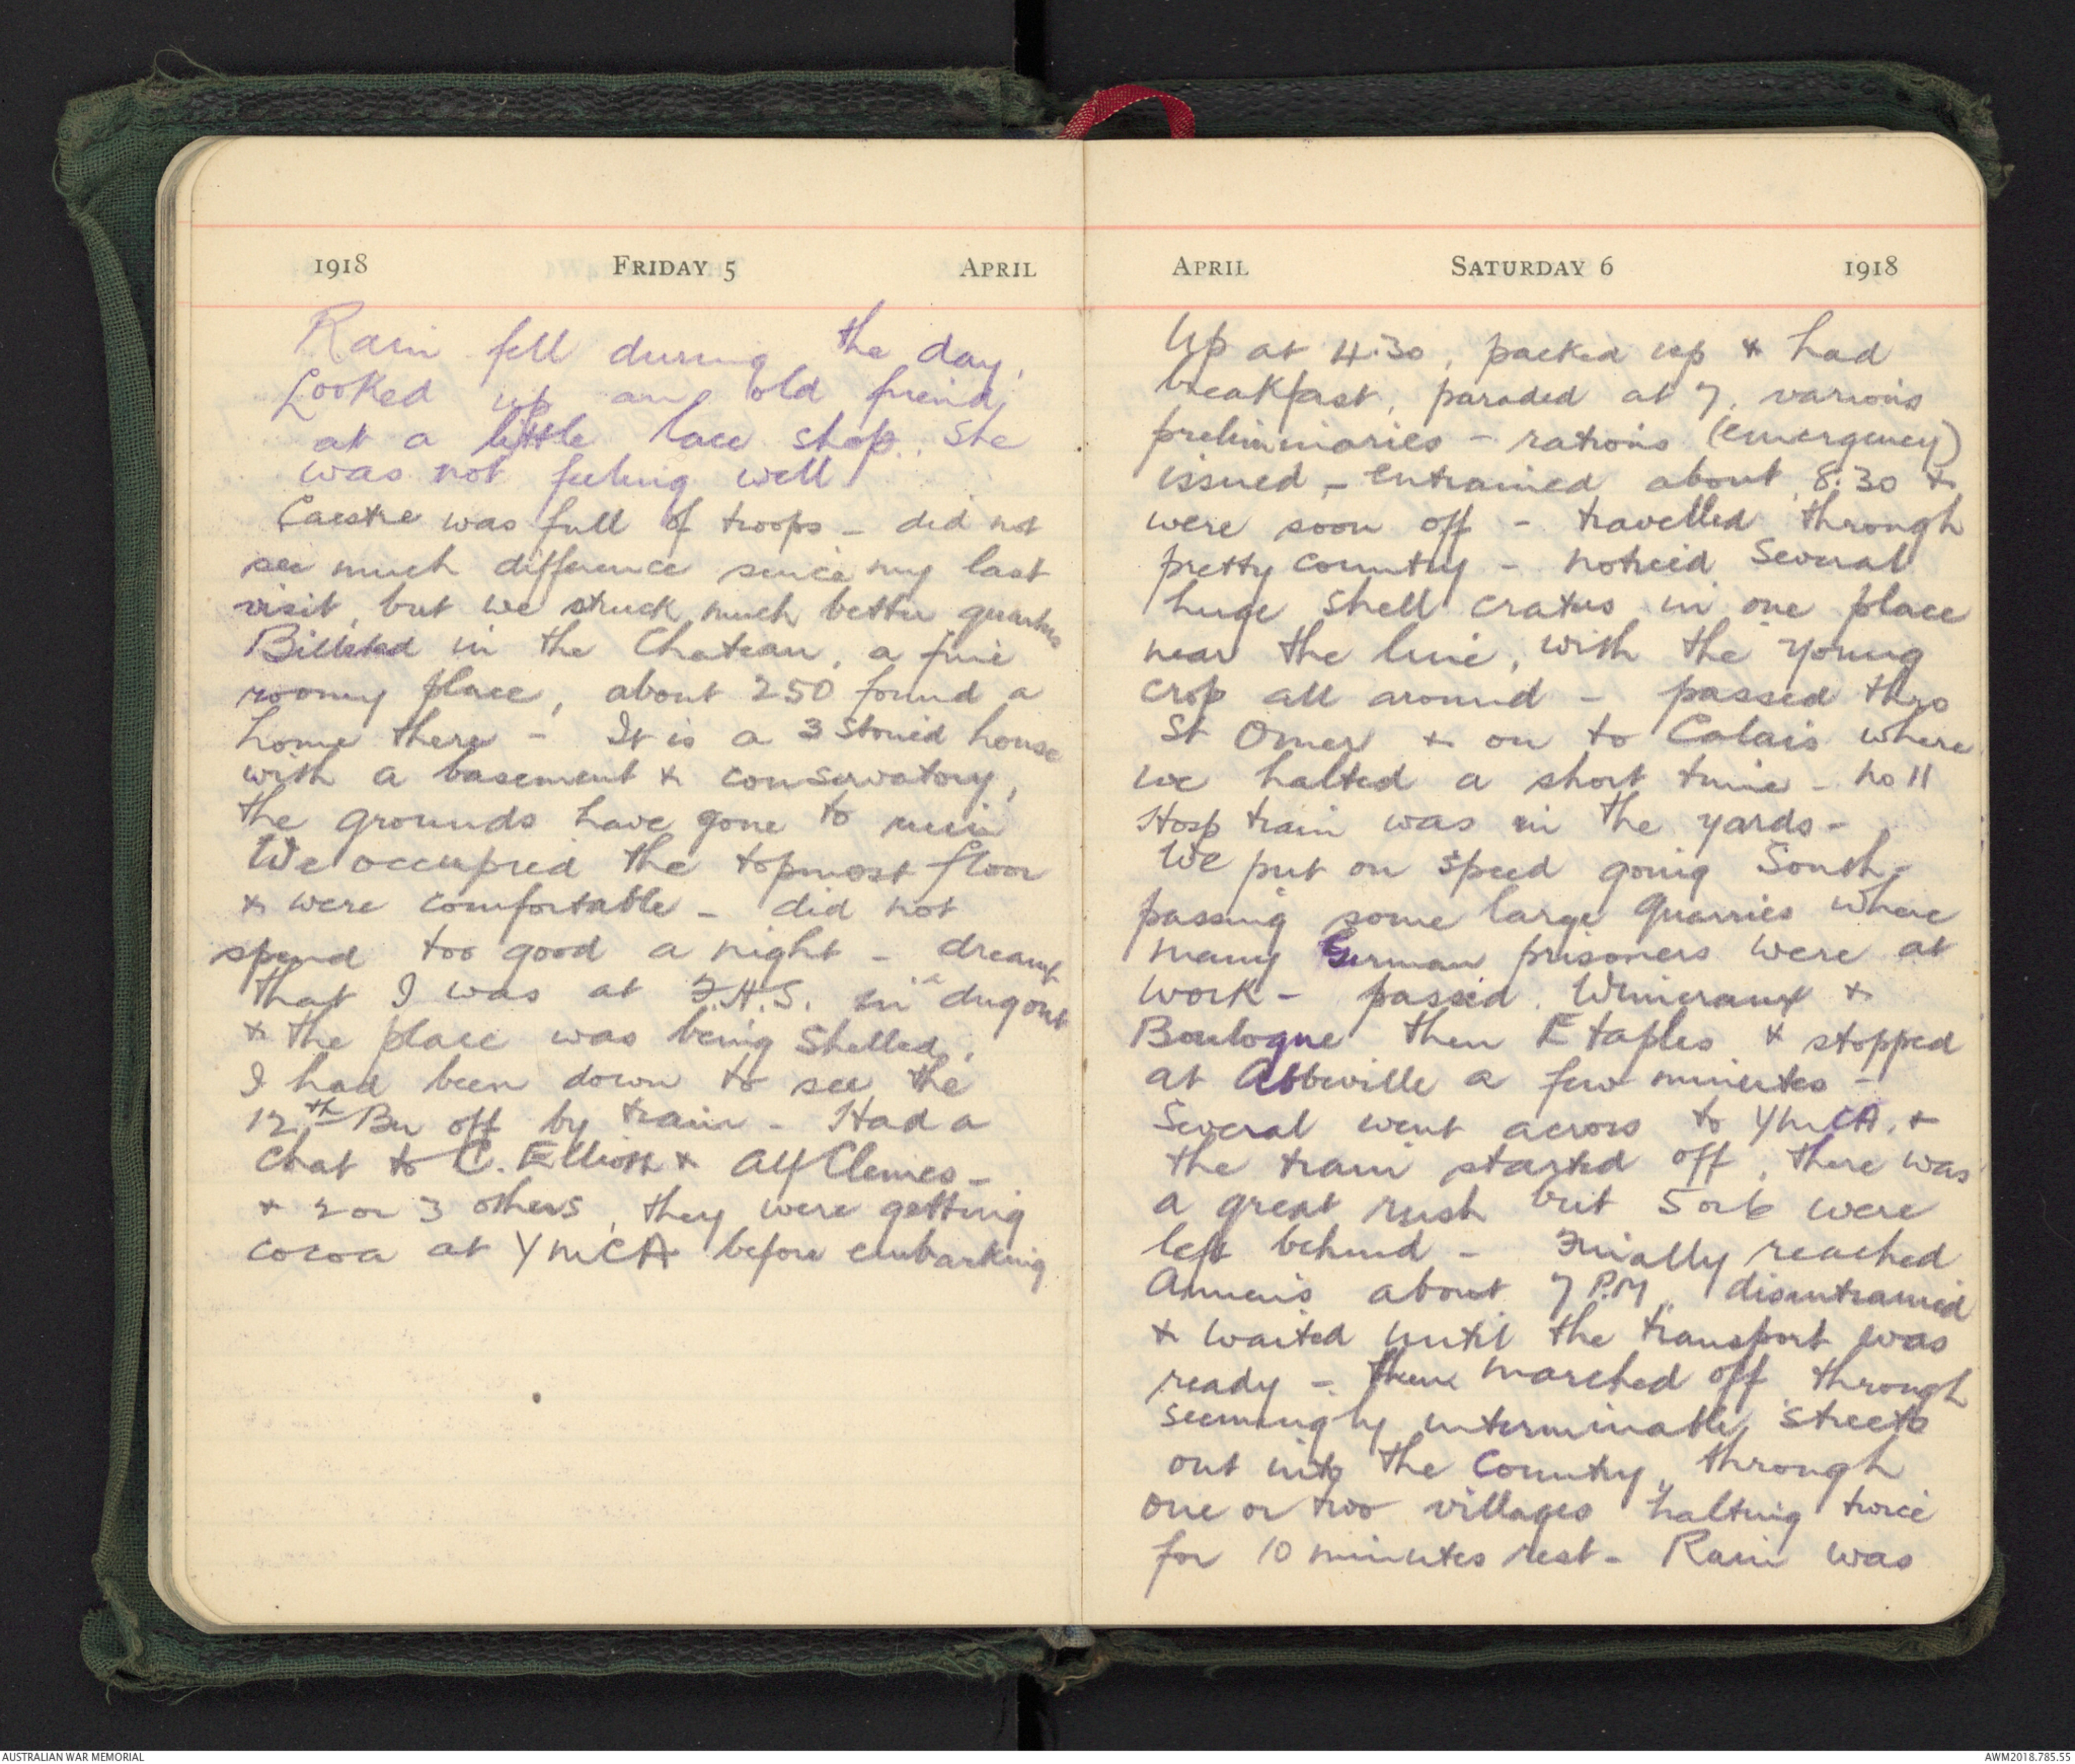 1918 FRIDAY 5 APRIL
Rain fell during the day,
Looked up an old friend
at a little lace shop. She
was not feeling well
Caestre was full of troops - did not
see much difference since my last
visit, but we struck much better quarters
Billeted in the Chateau, a fine
roomy place, about 250 found a
home there - It is a 3 storied house
with a basement & conservatory,
the grounds have gone to ruin
We occupied the topmost floor
& were comfortable - did not
spend too good a night - dreamt
that I was at F.H.S. in a dugout
& the place was being shelled.
I had been down to see the
12th Bn off by train - Had a
chat to C. Elliott & Alf Clemes -
& 2 or 3 others, they were getting
cocoa at YMCA before embarking
APRIL SATURDAY 6 1918
Up at 4.30, packed up & had
breakfast, paraded at 7, various
preliminaries - rations (emergency)
issued - entrained about 8.30 &
were soon off - travelled through
pretty country - noticed several
huge shell craters in one place
near the line, with the young
crop all around - passed thro
St Omer & on to Calais where
we halted a short time - no 11
Hosp train was in the yards -
We put on speed going South -
passing some large quarries where
many German prisoners were at
work - passed Wimeraux &
Boulogne then Etaples & stopped
at Abbeville a few minutes -
Several went across to YMCA. &
the train started off, there was
a great rush but 5 or 6 were
left behind - Finally reached
Amiens about 7 P.M, disentrained
& waited until the transport was
ready - then marched off through
seemingly interminable streets
out into the country, through
one or two villages halting twice
for 10 minutes rest - Rain was
AUSTRALIAN WAR MEMORIAL AWM2018.785.55